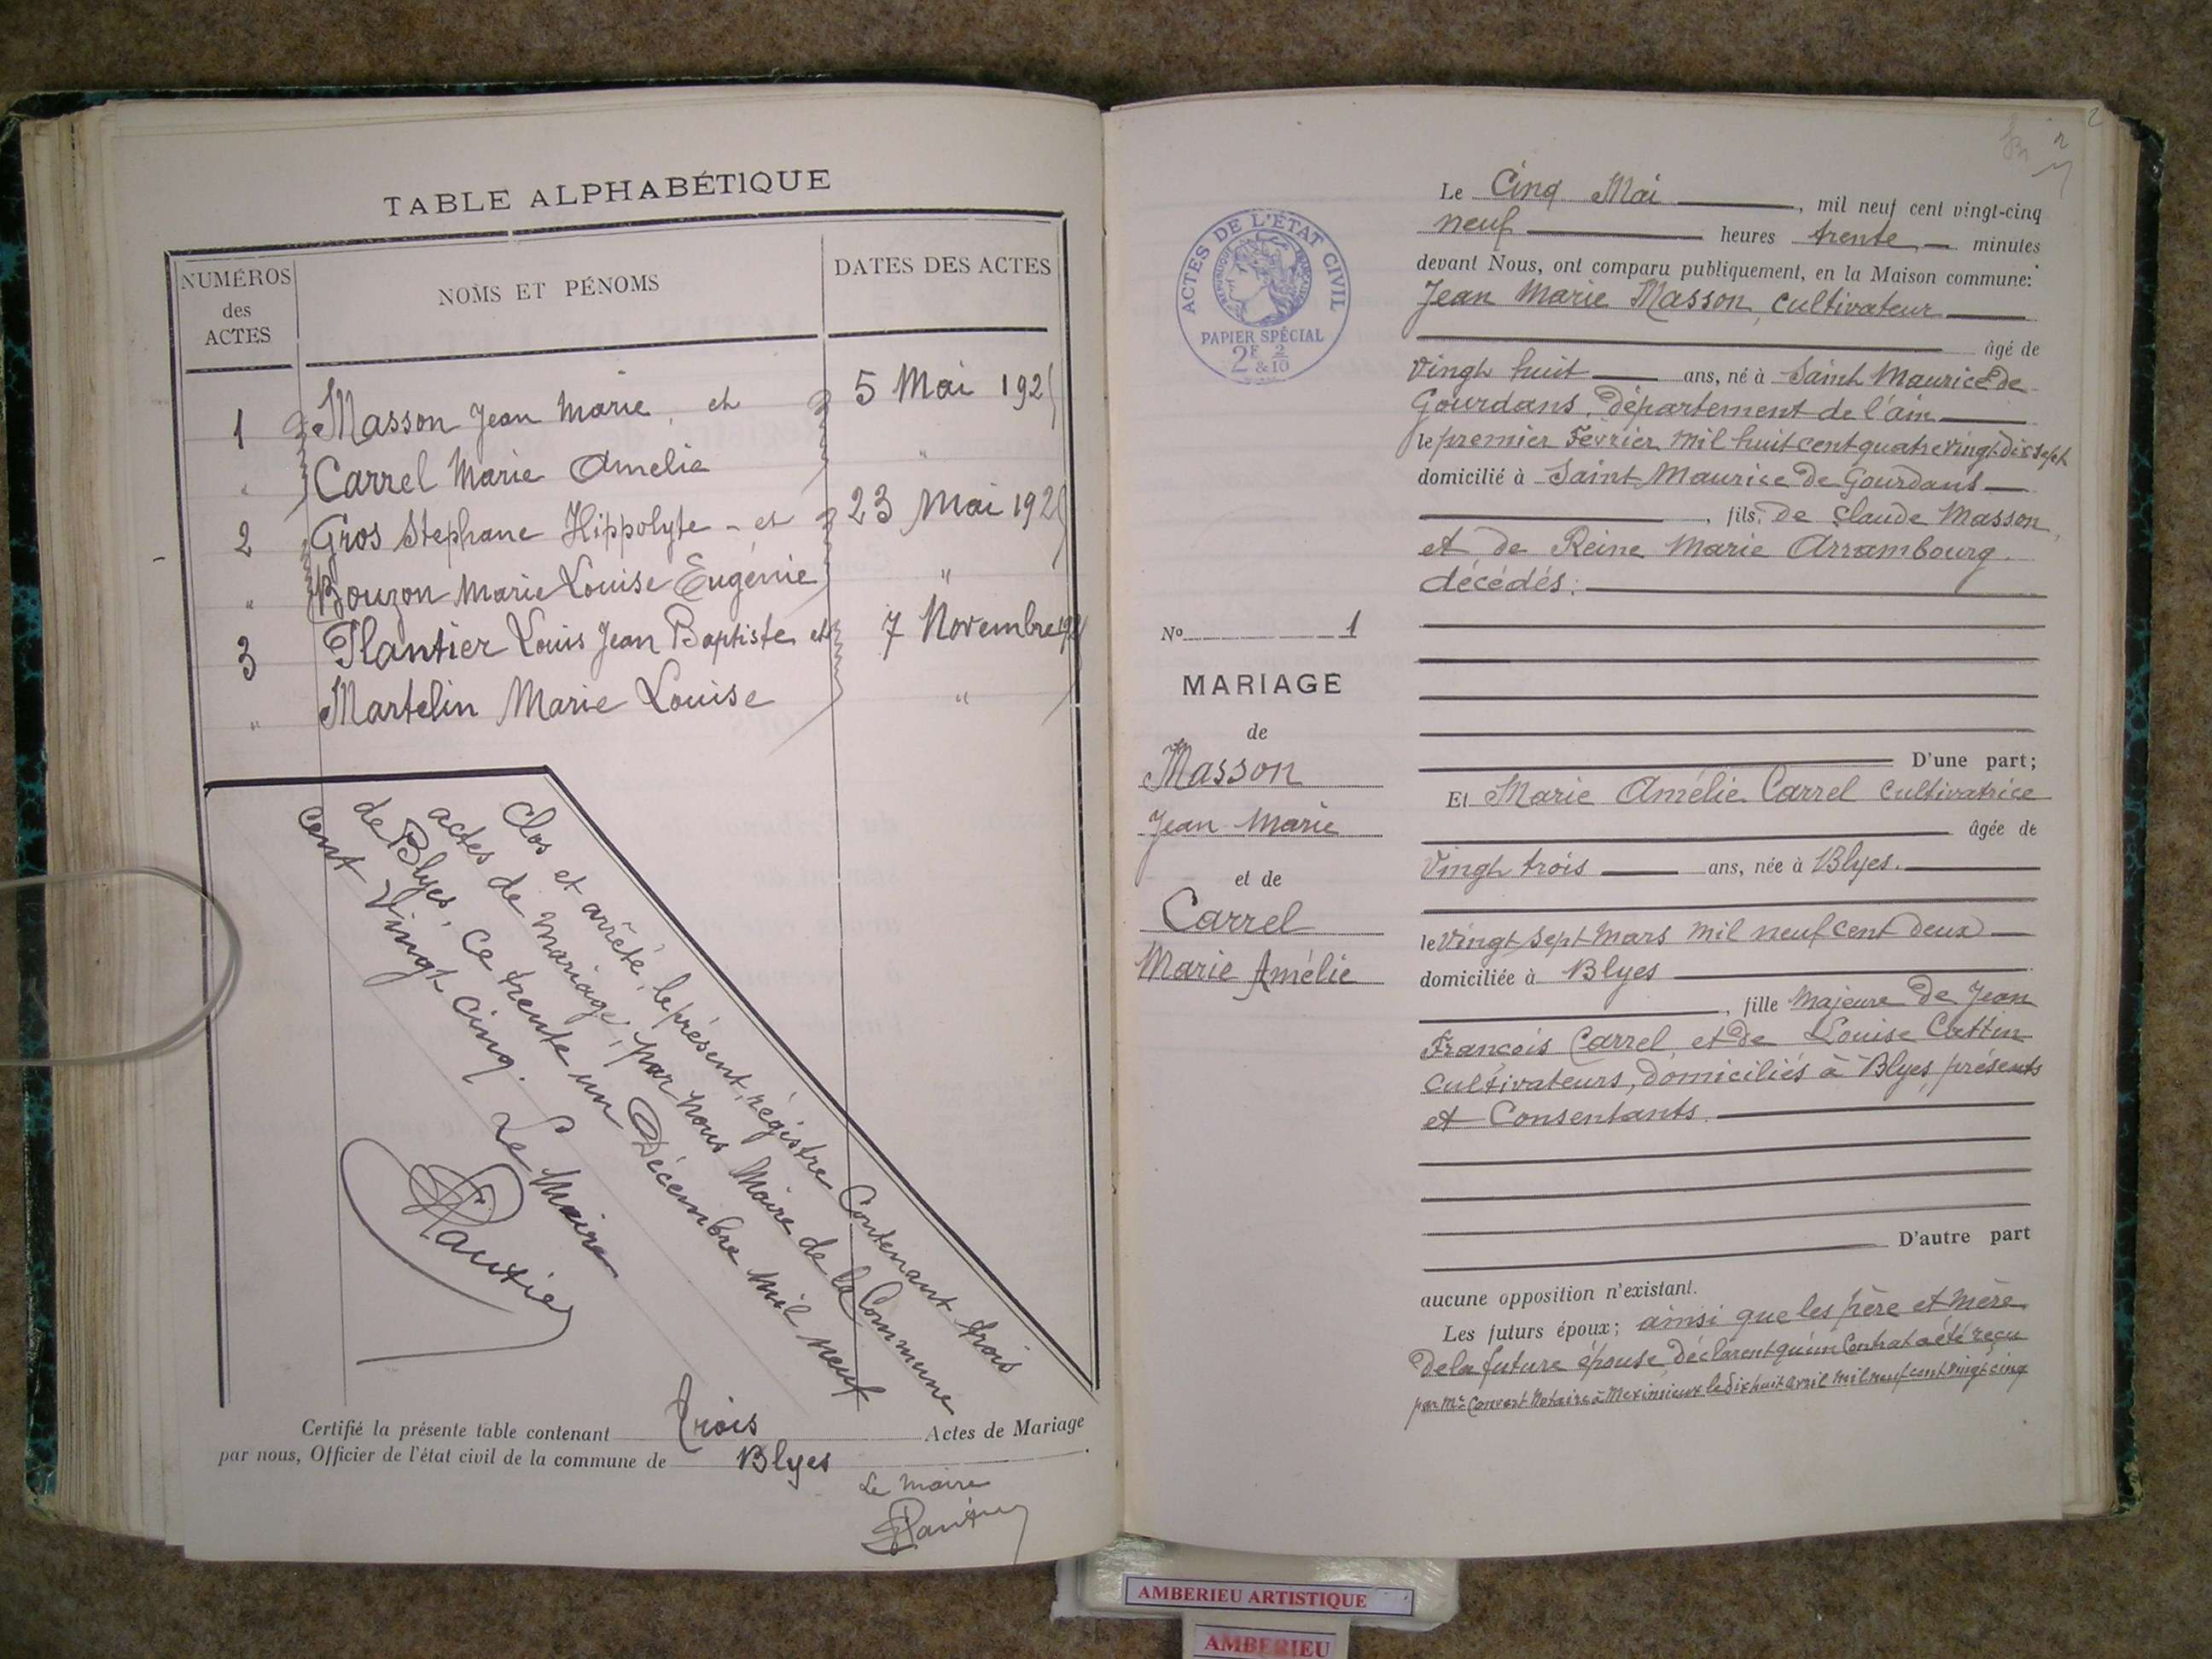 TABLE ALPHABÉTIQUE
NUMÉROS
des
ACTES
NOMS ET PÉNOMS
DATES DES ACTES
1 Masson Jean Marie et 5 Mai 192
" Carrel Marie Amelie "
2 Gros Stephane Hippolyte - et 23 Mai 192
" Bouzon Marie Louise Eugénie "
3 Plantier Louis Jean Baptiste et 7 Novembre
" Martelin Marie Louise "
Clos et arrêté, le présent, régistre Contenant trois
actes de mariage, par nous Maire de la Commune
de Blyes, ce trente un Décembre mil neuf
cent Vingt cinq.
Le Maire
Plantier
Certifié la présente table contenant trois Actes de Mariage
par nous, Officier de l'état civil de la commune de Blyes
Le maire
Plantier
2
ACTES DE L'ÉTAT CIVIL
RÉPUBLIQUE FRANÇAISE
PAPIER SPÉCIAL
2F & 2/10
No 1
MARIAGE
de
Masson
Jean Marie
et de
Carrel
Marie Amélie
Le Cinq Mai, mil neuf cent vingt-cinq
neuf heures trente, minutes
devant Nous, ont comparu publiquement, en la Maison commune:
Jean Marie Masson, cultivateur
âgé de
Vingt huit ans, né à Saint Maurice de
Gourdans, département de l'ain
le premier Février mil huit cent quatre vingt dix sept
domicilié à Saint Maurice de Gourdans
, fils, de Claude Masson,
et de Reine Marie Arrambourg.
décédés;
D'une part;
Et Marie Amélie Carrel Cultivatrice
âgée de
Vingt trois ans, née à Blyes.
le Vingt sept Mars mil neuf cent deux
domiciliée à Blyes
, fille Majeure de Jean
François Carrel et de Louise Cattin
Cultivateurs, domiciliés à Blyes, présents
et Consentants.
D'autre part
aucune opposition n'existant.
Les futurs époux; ainsi que les père et mère
De la future épouse, déclarent qu'un Contrat a été reçu
par Me Convert Notaire à Meximieux le dix huit avril mil neuf cent vingt cinq
AMBERIEU ARTISTIQUE
AMBERIEU